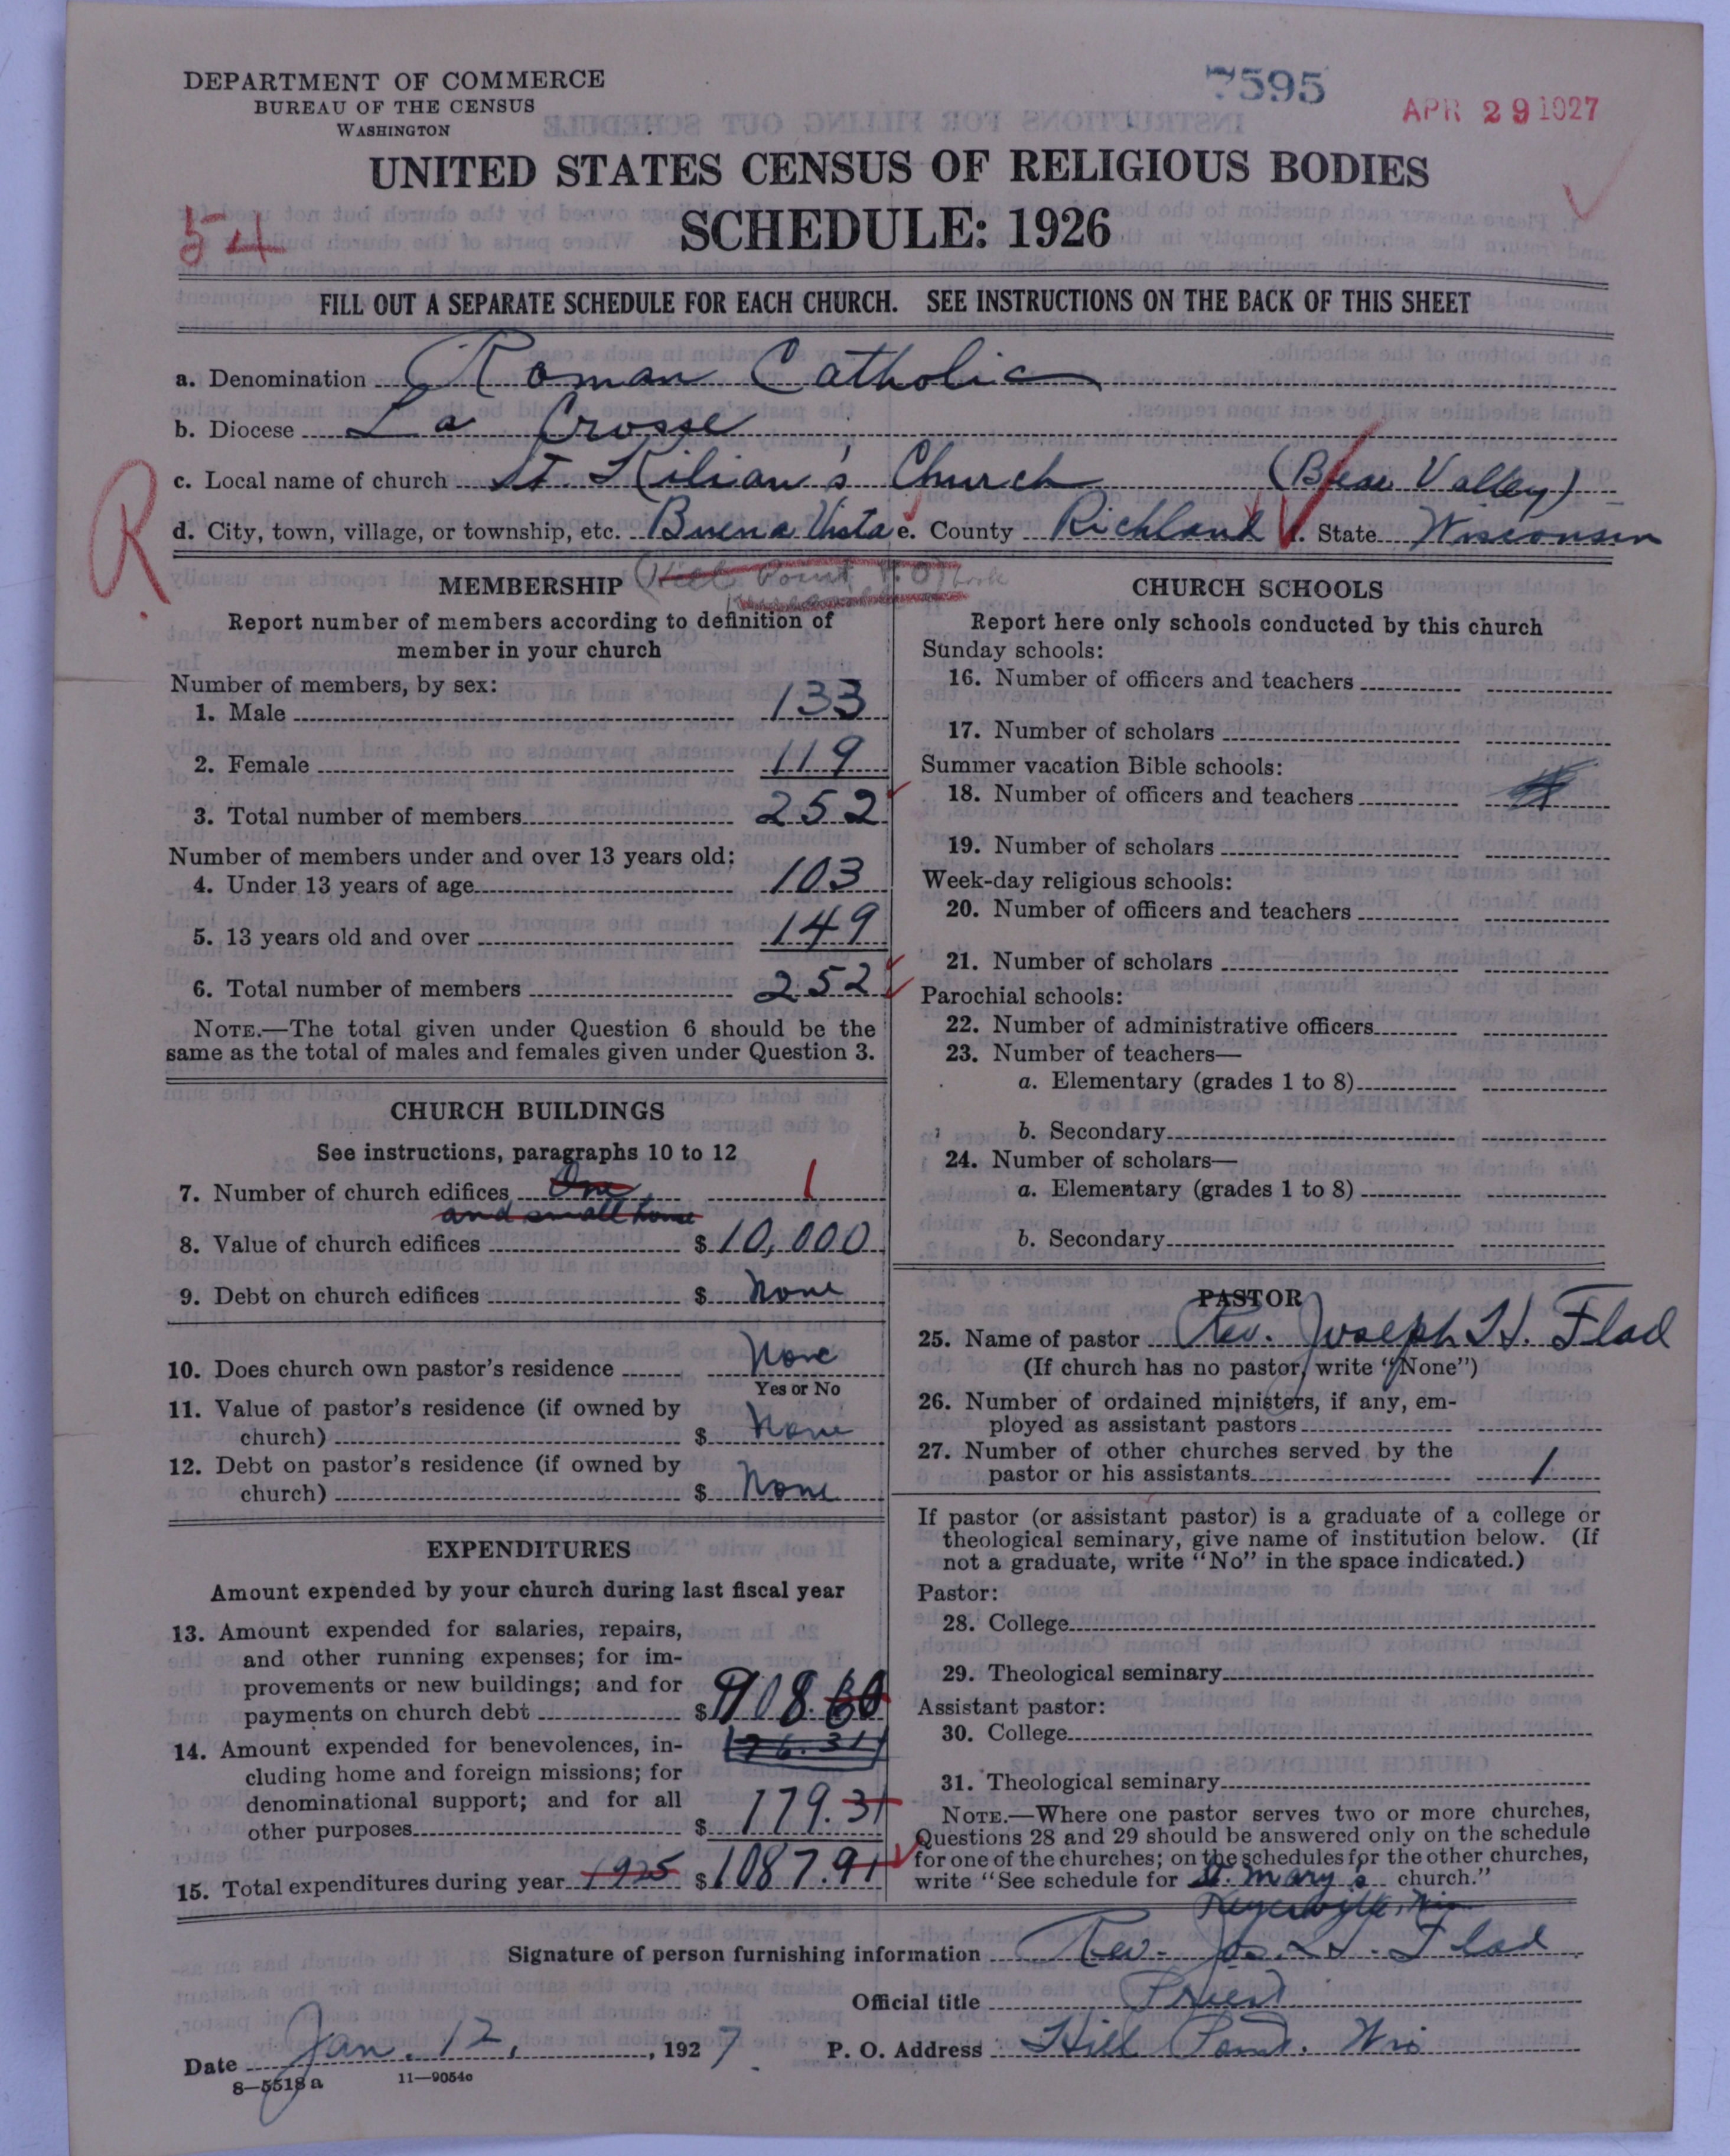 DEPARTMENT OF COMMERCE
BUREAU OF THE CENSUS
WASHINGTON
7595
APR 29 1927
UNITED STATES CENSUS OF RELIGIOUS BODIES
SCHEDULE: 1926
54
FILL OUT A SEPARATE SCHEDULE FOR EACH CHURCH. SEE INSTRUCTIONS ON THE BACK OF THIS SHEET
a. Denomination Roman Catholic
b. Diocese La Crosse
c. Local name of church St. Kilian's Church (Bear Valley)
R
d. City, town, village, or township, etc. Buena Vista e. County Richland f. State Wisconsin
MEMBERSHIP
(Hill Point, P.O)
Report number of members according to definition of
member in your church
Number of members, by sex:
1. Male 133
2. Female 119
3. Total number of members 252
Number of members under and over 13 years old:
4. Under 13 years of age 103
5. 13 years old and over 149
6. Total number of members 252
NOTE.—The total given under Question 6 should be the
same as the total of males and females given under Question 3.
CHURCH BUILDINGS
See instructions, paragraphs 10 to 12
7. Number of church edifices One 1
and small house
8. Value of church edifices $ 10,000
9. Debt on church edifices $ None
10. Does church own pastor's residence None
Yes or No
11. Value of pastor's residence (if owned by
church) $ None
12. Debt on pastor's residence (if owned by
church) $ None
EXPENDITURES
Amount expended by your church during last fiscal year
13. Amount expended for salaries, repairs,
and other running expenses; for im-
provements or new buildings; and for
payments on church debt $ 908.60
14. Amount expended for benevolences, in-
cluding home and foreign missions; for
denominational support; and for all
other purposes $ 179.31
15. Total expenditures during year 1925 $ 1087.91
CHURCH SCHOOLS
Report here only schools conducted by this church
Sunday schools:
16. Number of officers and teachers
17. Number of scholars
Summer vacation Bible schools:
18. Number of officers and teachers
19. Number of scholars
Week-day religious schools:
20. Number of officers and teachers
21. Number of scholars
Parochial schools:
22. Number of administrative officers
23. Number of teachers—
a. Elementary (grades 1 to 8)
b. Secondary
24. Number of scholars—
a. Elementary (grades 1 to 8)
b. Secondary
PASTOR
25. Name of pastor Rev. Joseph H. Flad
(If church has no pastor, write "None")
26. Number of ordained ministers, if any, em-
ployed as assistant pastors
27. Number of other churches served by the
pastor or his assistants 1
If pastor (or assistant pastor) is a graduate of a college or
theological seminary, give name of institution below. (If
not a graduate, write "No" in the space indicated.)
Pastor:
28. College
29. Theological seminary
Assistant pastor:
30. College
31. Theological seminary
NOTE.—Where one pastor serves two or more churches,
Questions 28 and 29 should be answered only on the schedule
for one of the churches; on the schedules for the other churches,
write "See schedule for St. Mary's church."
Keyesville, Wis
Signature of person furnishing information Rev. Jos. H. Flad
Official title Priest
Date Jan. 12, 1927 P. O. Address Hill Point. Wis
8—5518 a 11—9054c